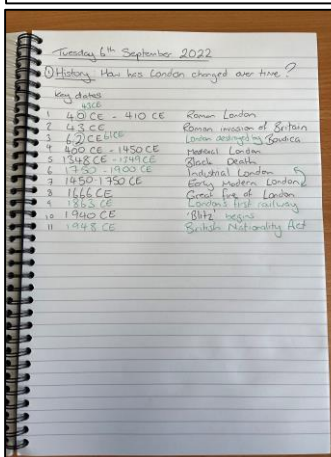 Tuesday 6th September 2022
① History How has London changed over time?
Key dates
43CE
1 40 CE - 410 CE Roman London
2 43 CE Roman invasion of Britain
3 62 CE 61CE London destroyed by Boudica
4 400 CE - 1450 CE Medieval London
5 1348 CE - 1349 CE Black Death
6 1750 - 1900 CE Industrial London
7 1450-1750 CE Early Modern London
8 1666 CE Great fire of London
9 1863 CE London's first railway
10 1940 CE 'Blitz' begins
11 1948 CE British Nationality Act